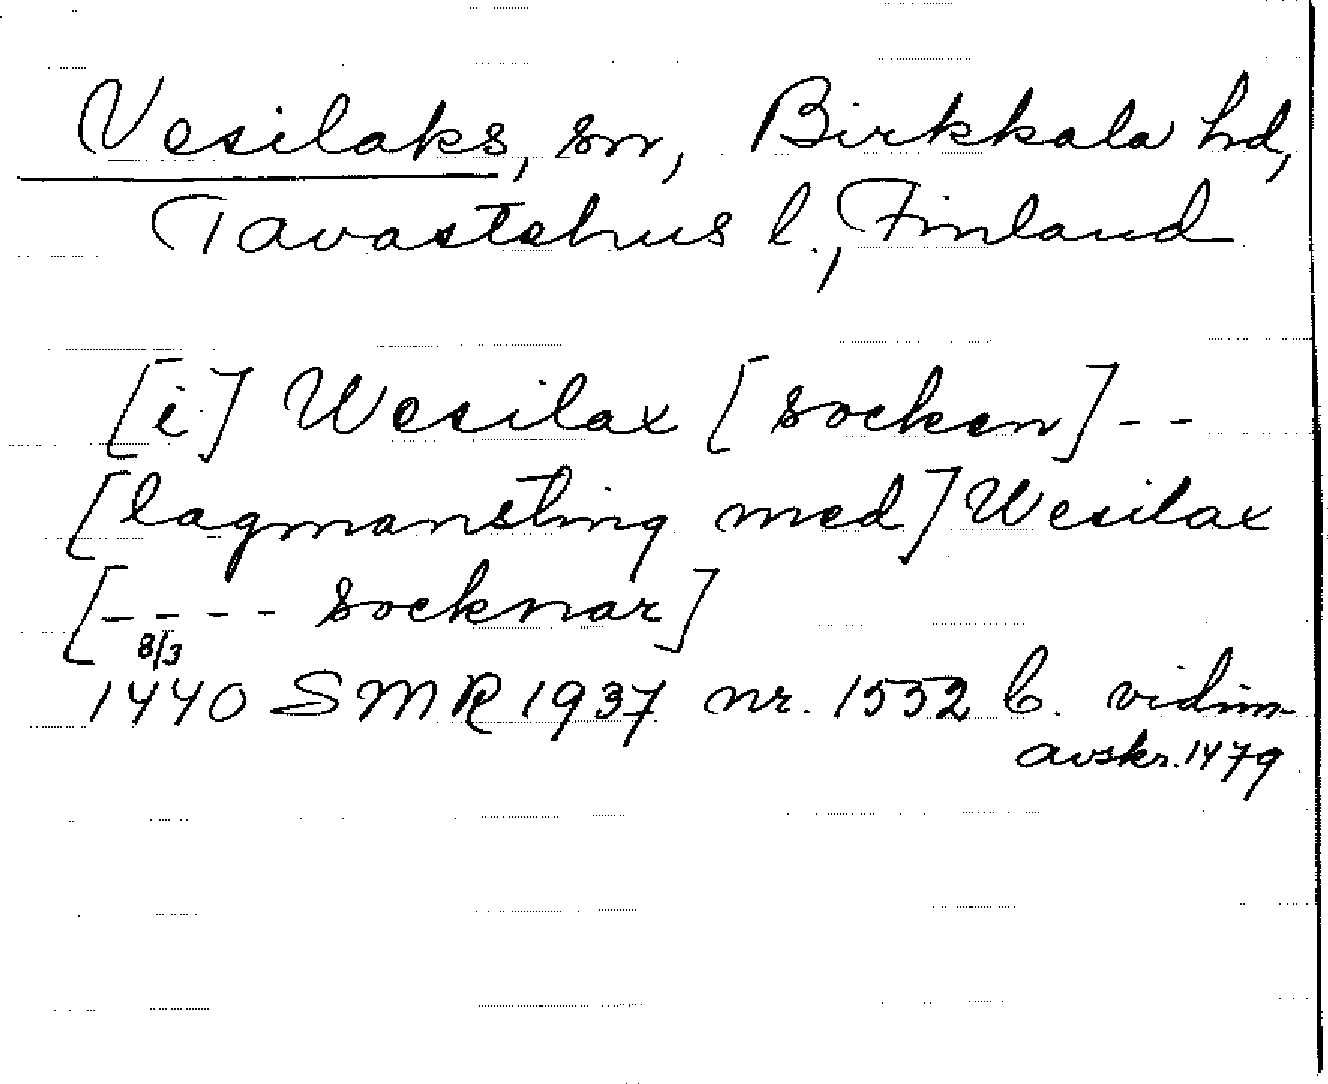 Vesilaks, sn, Birkkala hd,
Tavastehus l., Finland
[i] Wesilax [socken] - -
[lagmansting med] Wesilax
[- - - - socknar]
8/3
1440 SMR 1937 nr. 1532 b. vidim
avskr. 1479